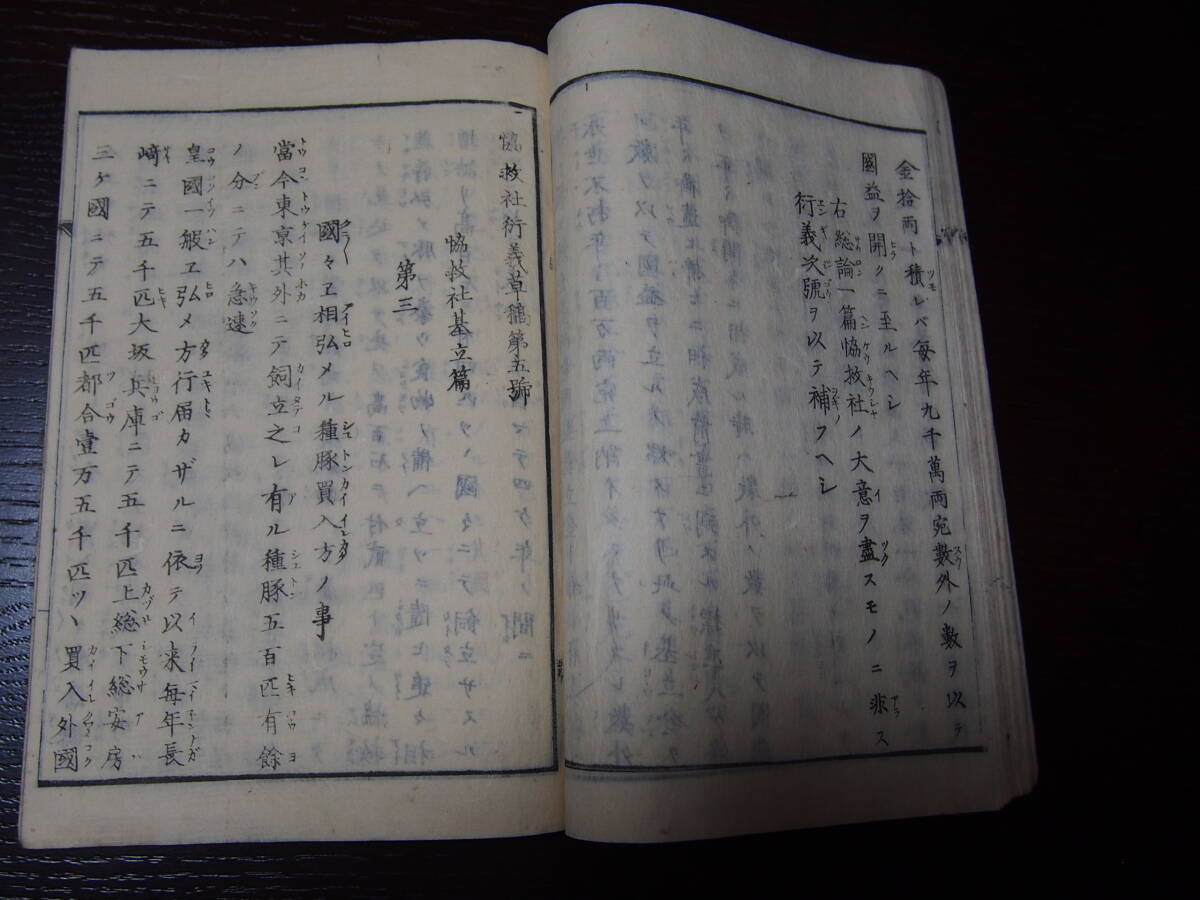 金拾両ト積レバ毎年九千萬両宛數外ノ數ヲ以テ
國益ヲ開クニ至ルヘシ
右総論一篇恊救社ノ大意ヲ盡スモノニ非ス
衍義次號ヲ以テ補フヘシ
恊救社衍義草稿第五號
恊救社基立篇
第三
國々ヱ相弘メル種豚買入方ノ事
當今東京其外ニテ飼立之レ有ル種豚五百匹有餘
ノ分ニテハ急速
皇國一般ヱ弘メ方行届カザルニ依テ以来毎年長
﨑ニテ五千匹大坂兵庫ニテ五千匹上総下総安房
三ヶ國ニテ五千匹都合壹万五千匹ツヽ買入外國